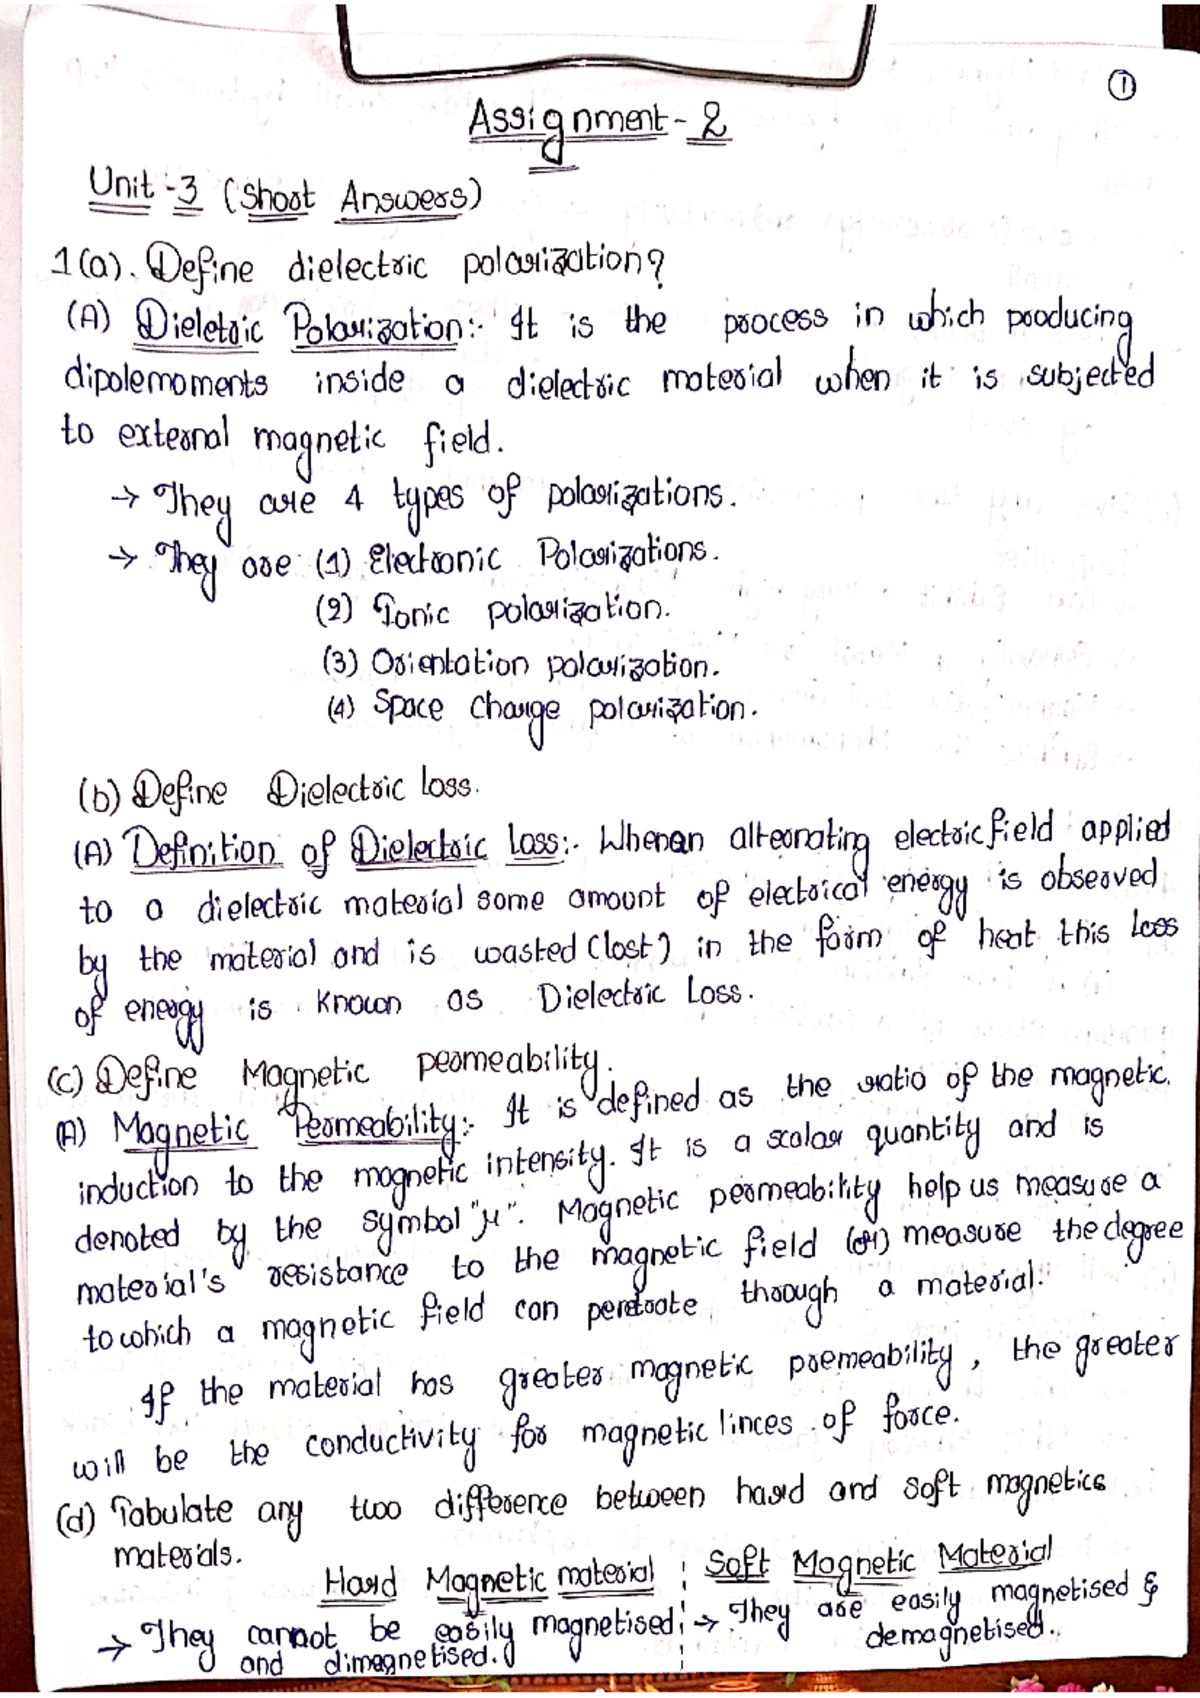 ①
Assignment - 2
Unit -3 (Short Answers)
1(a). Define dielectric polarization?
(A) Dieletric Polarization:- It is the process in which producing
dipolemoments inside a dielectric material when it is subjected
to external magnetic field.
→ They are 4 types of polarizations.
→ They are (1) Electronic Polarizations.
(2) Ionic polarization.
(3) Orientation polarization.
(4) Space charge polarization.
(b) Define Dielectric loss.
(A) Definition of Dielectric Loss:- Whenan alternating electric field applied
to a dielectric material some amount of electrical energy is observed
by the material and is wasted (lost) in the form of heat this Loss
of energy is known as Dielectric Loss.
(c) Define Magnetic permeability.
(A) Magnetic Permeability:- It is defined as the ratio of the magnetic.
induction to the magnetic intensity. It is a scalar quantity and is
denoted by the symbol "μ". Magnetic permeability help us measure a
material's resistance to the magnetic field (or) measure the degree
to which a magnetic field can penetrate through a material.
If the material has greater magnetic premeability, the greater
will be the conductivity for magnetic linces of force.
(d) Tabulate any two difference between hard and soft magnetics
materials.
Hard Magnetic material Soft Magnetic Material
→ They cannot be easily magnetised → They are easily magnetised &
and dimagnetised. demagnetised..